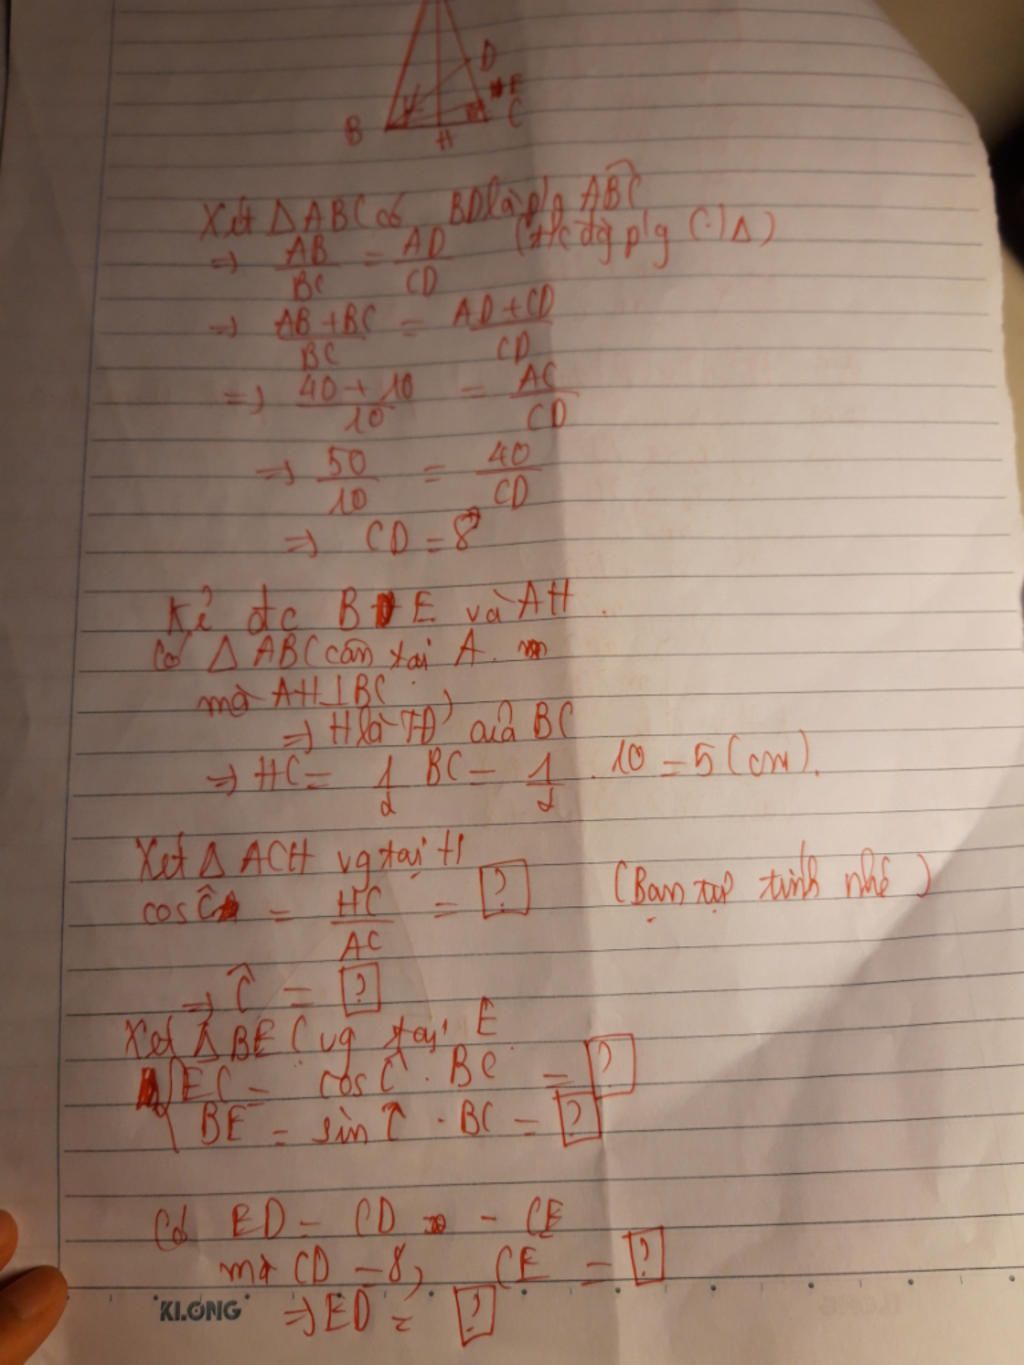 D
E
B
H
C
Xét Δ ABC có BD là p/g ABC
(t/c đg p/g (·) Δ)
=> AB/BC = AD/CD
=> AB+BC/BC = AD+CD/CD
=> 40+10/10 = AC/CD
=> 50/10 = 40/CD
=> CD = 8
Kẻ đc BE và AH.
Có Δ ABC cân tại A.
mà AH⊥BC
=> H là TĐ của BC
=> HC = 1/2 BC = 1/2 . 10 = 5 (cm).
Xét Δ ACH vg tại H
cos Ĉ = HC/AC = ? (Bạn tự tính nhé)
=> Ĉ = ?
Xét Δ BEC vg tại E
EC = cos Ĉ . BC = ?
BE = sin Ĉ . BC = ?
Có ED = CD - CE
mà CD = 8, CE = ?
=> ED = ?
KLONG